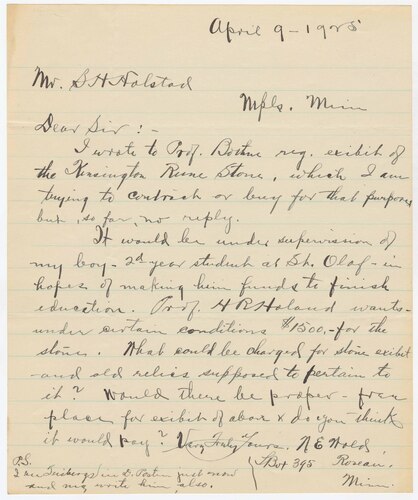 April 9 - 1925
Mr. S H Holstad
Mpls. Minn
Dear Sir; -
I wrote to Prof. Bothne reg. exibit of
the Kensington Rune Stone, which I am
trying to contract or buy for that purpose
but, so far, no reply.
It would be under supervision of
my boy - 2d year student at St. Olaf - in
hopes of making him funds to finish
education. Prof. H R Holand wants -
under certain conditions $1500,- for the
stone. What could be charged for stone exibit
- and old relics supposed to pertain to
it? Would there be proper - free
place for exibit of above & do you think
it would pay? Very Truly Yours. N E Wold,
Box 395 Roseau.
Minn.
P.S.
I am in D. Posten just now
and reg write him, also.